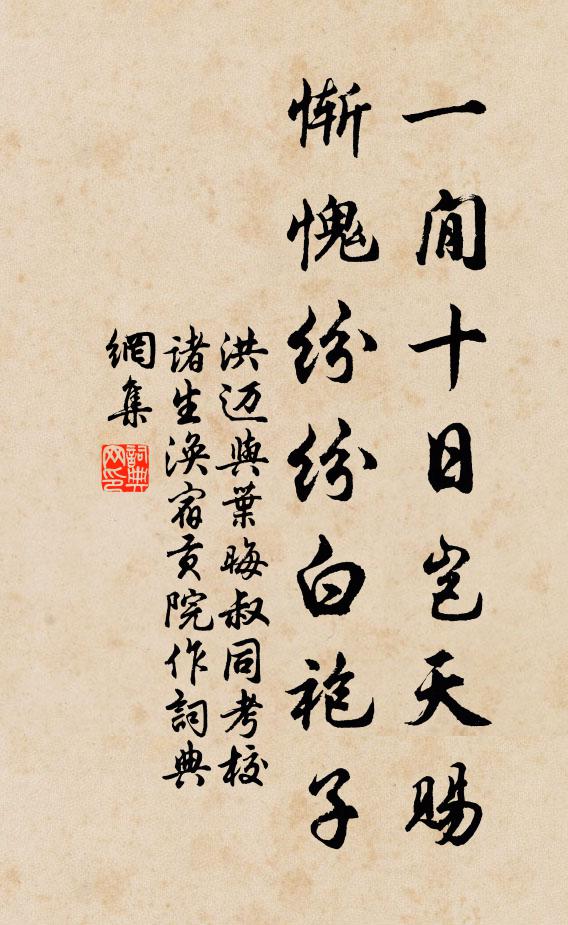 一閒十日岂天賜
慚愧紛紛白袍子
洪迈與葉晦叔同考校
诸生渙宿贡院作詞典
網集
詞典网印